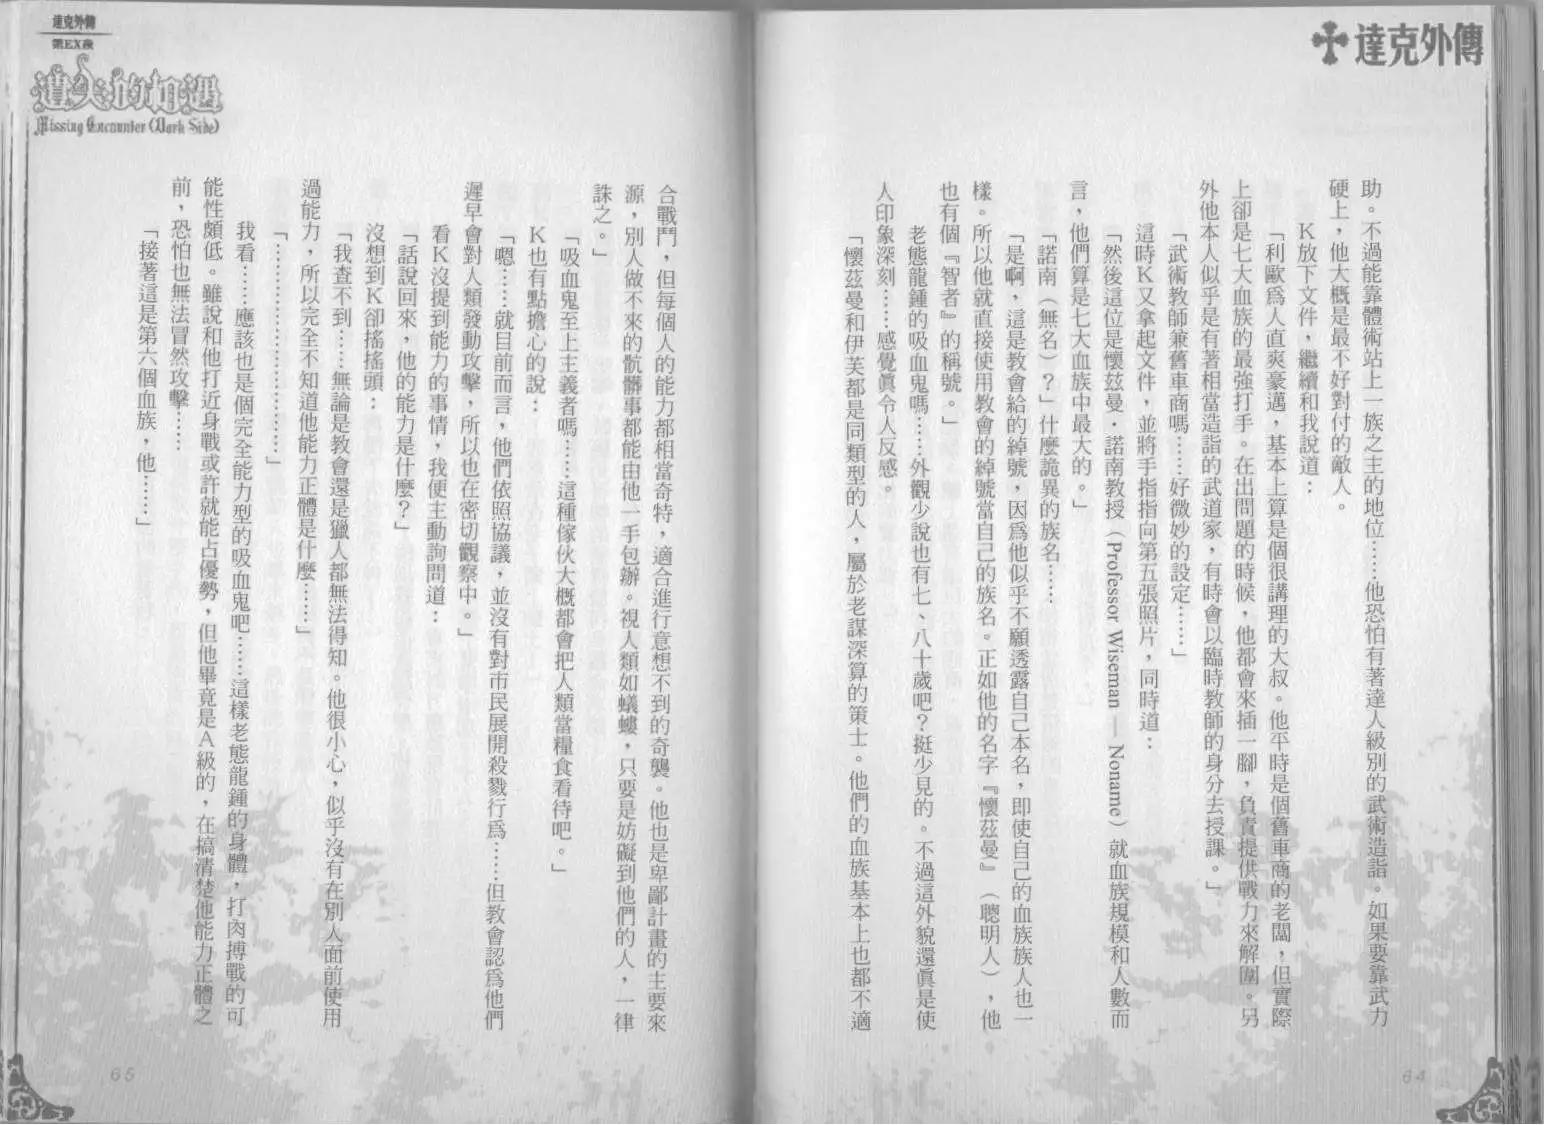 達克外傳
助。不過能靠體術站上一族之主的地位……他恐怕有著達人級別的武術造詣。如果要靠武力
硬上,他大概是最不好對付的敵人。
K放下文件,繼續和我說道:
「利歐爲人直爽豪邁,基本上算是個很講理的大叔。他平時是個舊車商的老闆,但實際
上卻是七大血族的最強打手。在出問題的時候,他都會來插一腳,負責提供戰力來解圍。另
外他本人似乎是有著相當造詣的武道家,有時會以臨時教師的身分去授課。」
「武術教師兼舊車商嗎……好微妙的設定……」
這時K又拿起文件,並將手指指向第五張照片,同時道:
「然後這位是懷茲曼・諾南教授(Professor Wiseman — Noname)就血族規模和人數而
言,他們算是七大血族中最大的。」
「諾南(無名)?」什麼詭異的族名……
「是啊,這是教會給的綽號,因爲他似乎不願透露自己本名,即使自己的血族族人也一
樣。所以他就直接使用教會的綽號當自己的族名。正如他的名字『懷茲曼』(聰明人),他
也有個『智者』的稱號。」
老態龍鍾的吸血鬼嗎……外觀少說也有七、八十歲吧?挺少見的。不過這外貌還眞是使
人印象深刻……感覺眞令人反感。
「懷茲曼和伊芙都是同類型的人,屬於老謀深算的策士。他們的血族基本上也都不適
64
達克外傳
第EX夜
遺失的相遇
Missing Encounter (Dark Side)
合戰鬥,但每個人的能力都相當奇特,適合進行意想不到的奇襲。他也是卑鄙計畫的主要來
源,別人做不來的骯髒事都能由他一手包辦。視人類如蟻螻,只要是妨礙到他們的人,一律
誅之。」
「吸血鬼至上主義者嗎……這種傢伙大概都會把人類當糧食看待吧。」
K也有點擔心的說:
「嗯……就目前而言,他們依照協議,並沒有對市民展開殺戮行爲……但教會認爲他們
遲早會對人類發動攻擊,所以也在密切觀察中。」
看K沒提到能力的事情,我便主動詢問道:
「話說回來,他的能力是什麼?」
沒想到K卻搖搖頭:
「我查不到……無論是教會還是獵人都無法得知。他很小心,似乎沒有在別人面前使用
過能力,所以完全不知道他能力正體是什麼……」
「…………………………」
我看……應該也是個完全能力型的吸血鬼吧……這樣老態龍鍾的身體,打肉搏戰的可
能性頗低。雖說和他打近身戰或許就能占優勢,但他畢竟是A級的,在搞清楚他能力正體之
前,恐怕也無法冒然攻擊……
「接著這是第六個血族,他……」
65